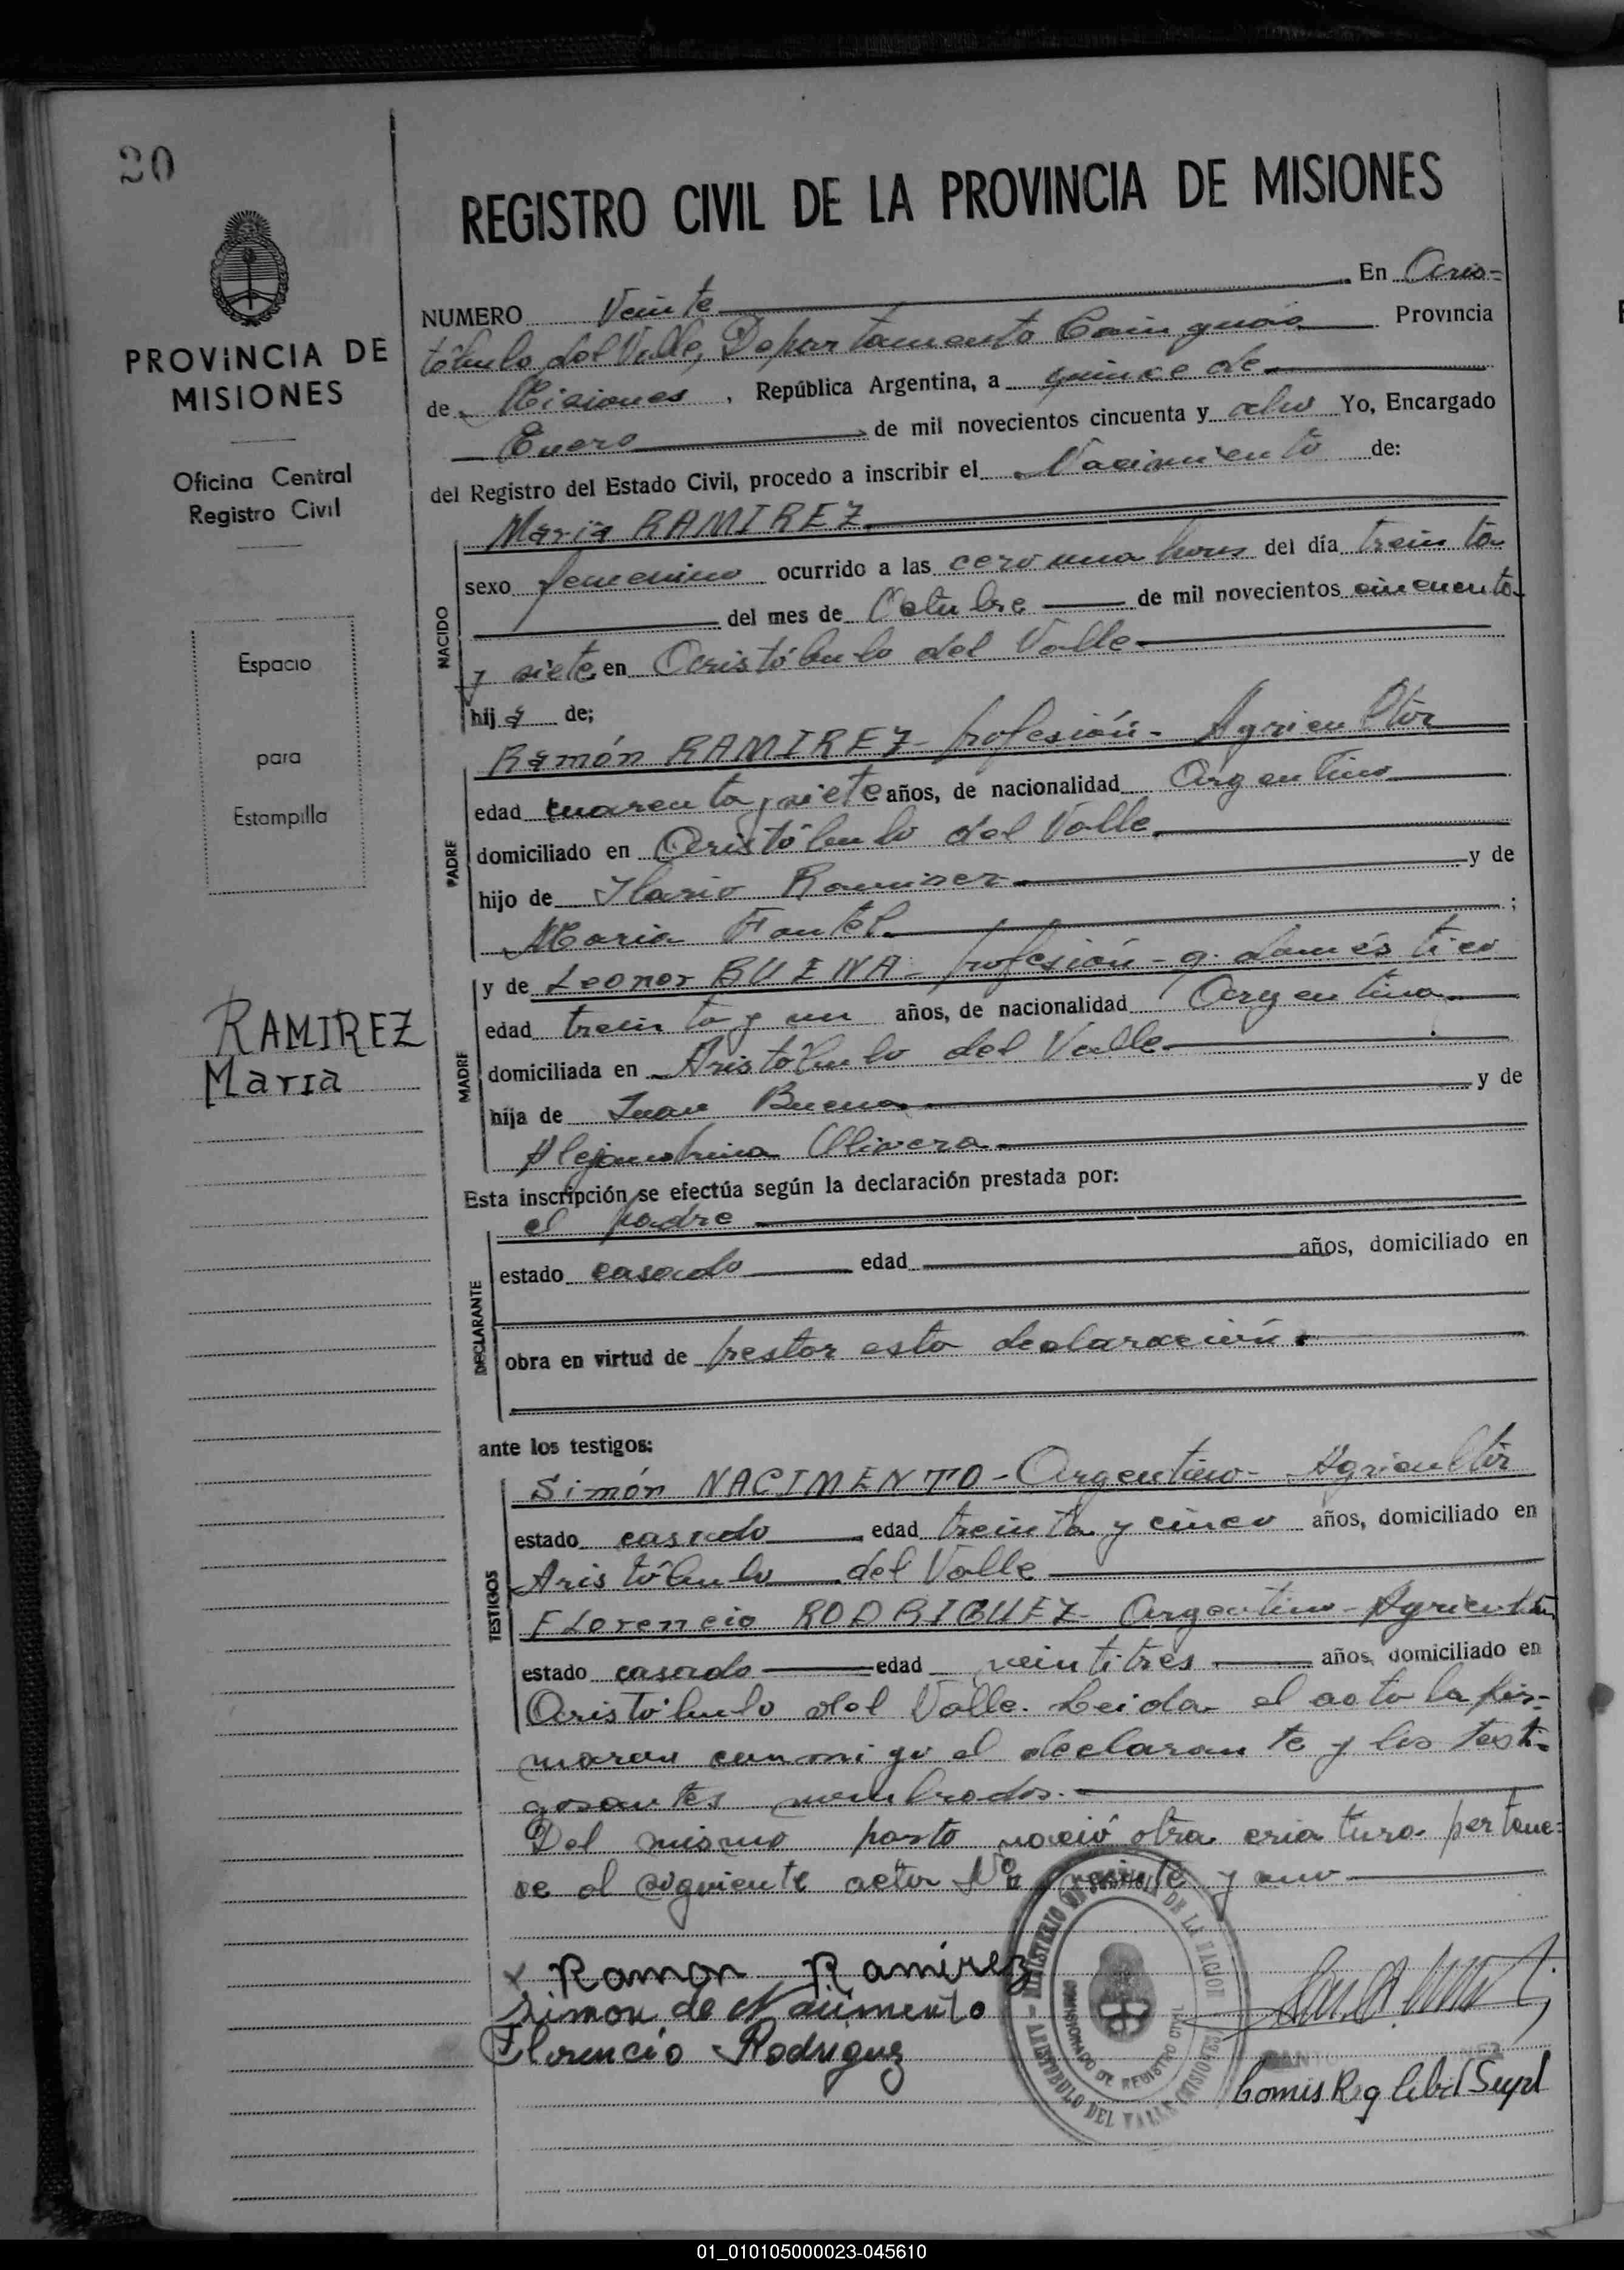 20
PROVINCIA DE
MISIONES
Oficina Central
Registro Civil
Espacio
para
Estampilla
RAMIREZ
Maria
REGISTRO CIVIL DE LA PROVINCIA DE MISIONES
NUMERO Veinte En Aris=
tóbulo del Valle, Departamento Cainguás Provincia
de Misiones, República Argentina, a quince de
Enero de mil novecientos cincuenta y ocho Yo, Encargado
del Registro del Estado Civil, procedo a inscribir el Nacimiento de:
NACIDO
Maria RAMIREZ
sexo femenino ocurrido a las cero una hora del día treinta
del mes de Octubre de mil novecientos cincuenta
y siete en Aristóbulo del Valle
hija de;
PADRE
Ramón RAMIREZ - profesión - Agricultor
edad cuarenta y siete años, de nacionalidad Argentino
domiciliado en Aristóbulo del Valle
hijo de Ilario Ramirez y de
Maria Fantel ;
MADRE
y de Leonor BUENA - profesión - q. doméstico
edad treinta y un años, de nacionalidad Argentina
domiciliada en Aristóbulo del Valle
hija de Juan Buena y de
Alejandrina Olivera
Esta inscripción se efectúa según la declaración prestada por:
DECLARANTE
el padre
estado casado edad años, domiciliado en
obra en virtud de prestar esta declaración.
ante los testigos:
TESTIGOS
Simón NACIMENTO - Argentino - Agricultor
estado casado edad treinta y cinco años, domiciliado en
Aristóbulo del Valle
Florencio RODRIGUEZ - Argentino - Agricultor
estado casado edad veintitres años, domiciliado en
Aristóbulo del Valle. Leida el acta la fir=
maron conmigo el declarante y los testi=
gosantes nombrados.
Del mismo parto nació otra criatura pertene=
ce al siguiente acta Nº veinte y uno
x Ramon Ramirez
Simon de Nacimento
Florencio Rodriguez
MINISTERIO DE JUSTICIA DE LA NACION
COMISIONADO DE REGISTRO CIVIL
ARISTOBULO DEL VALLE (MISIONES)
Comis Reg Civil Supl
01_010105000023-045610